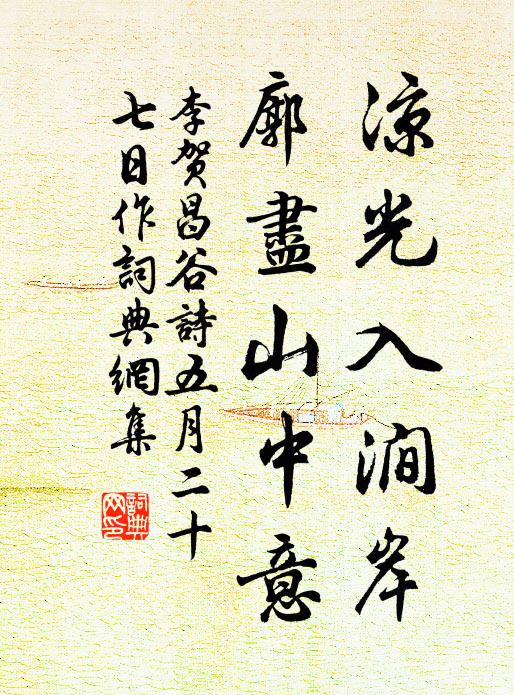 涼光入澗岸
廓盡山中意
李賀昌谷詩五月二十
七日作詞典網集
詞典
網印